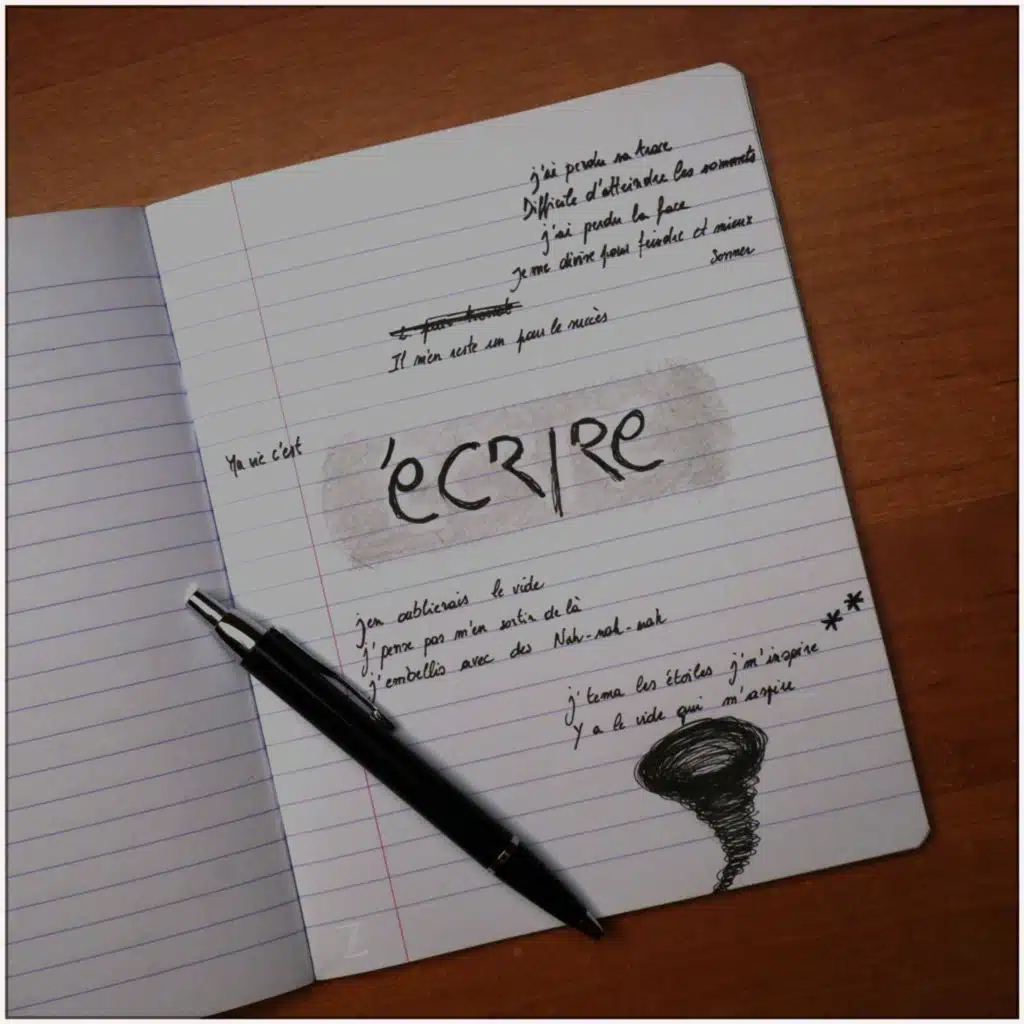 j'ai perdu sa trace
Difficile d'atteindre les sommets
j'ai perdu la face
je me divise pour feindre et mieux
sonner
Il m'en reste un pour le succès
Ma vie c'est
éCRIRe
j'en oublierais le vide
j'pense pas m'en sortir de là
j'embellis avec des Nah-nah-nah
j'tema les étoiles j'm'inspire
Y a le vide qui m'aspire
Z